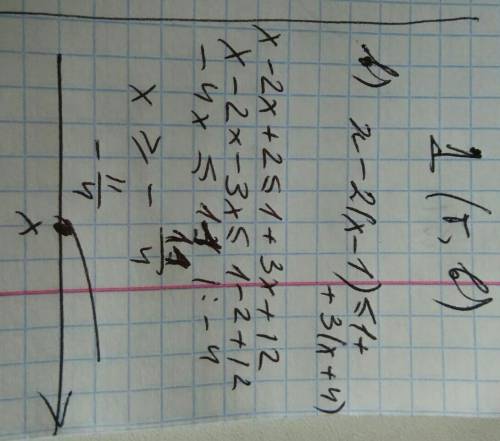 1 (г, в)
в) x - 2(x - 1) ≤ 1 +
+ 3(x + 4)
x - 2x + 2 ≤ 1 + 3x + 12
x - 2x - 3x ≤ 1 - 2 + 12
- 4x ≤ 11 | : - 4
x ≥ - 11/4
- 11/4
x